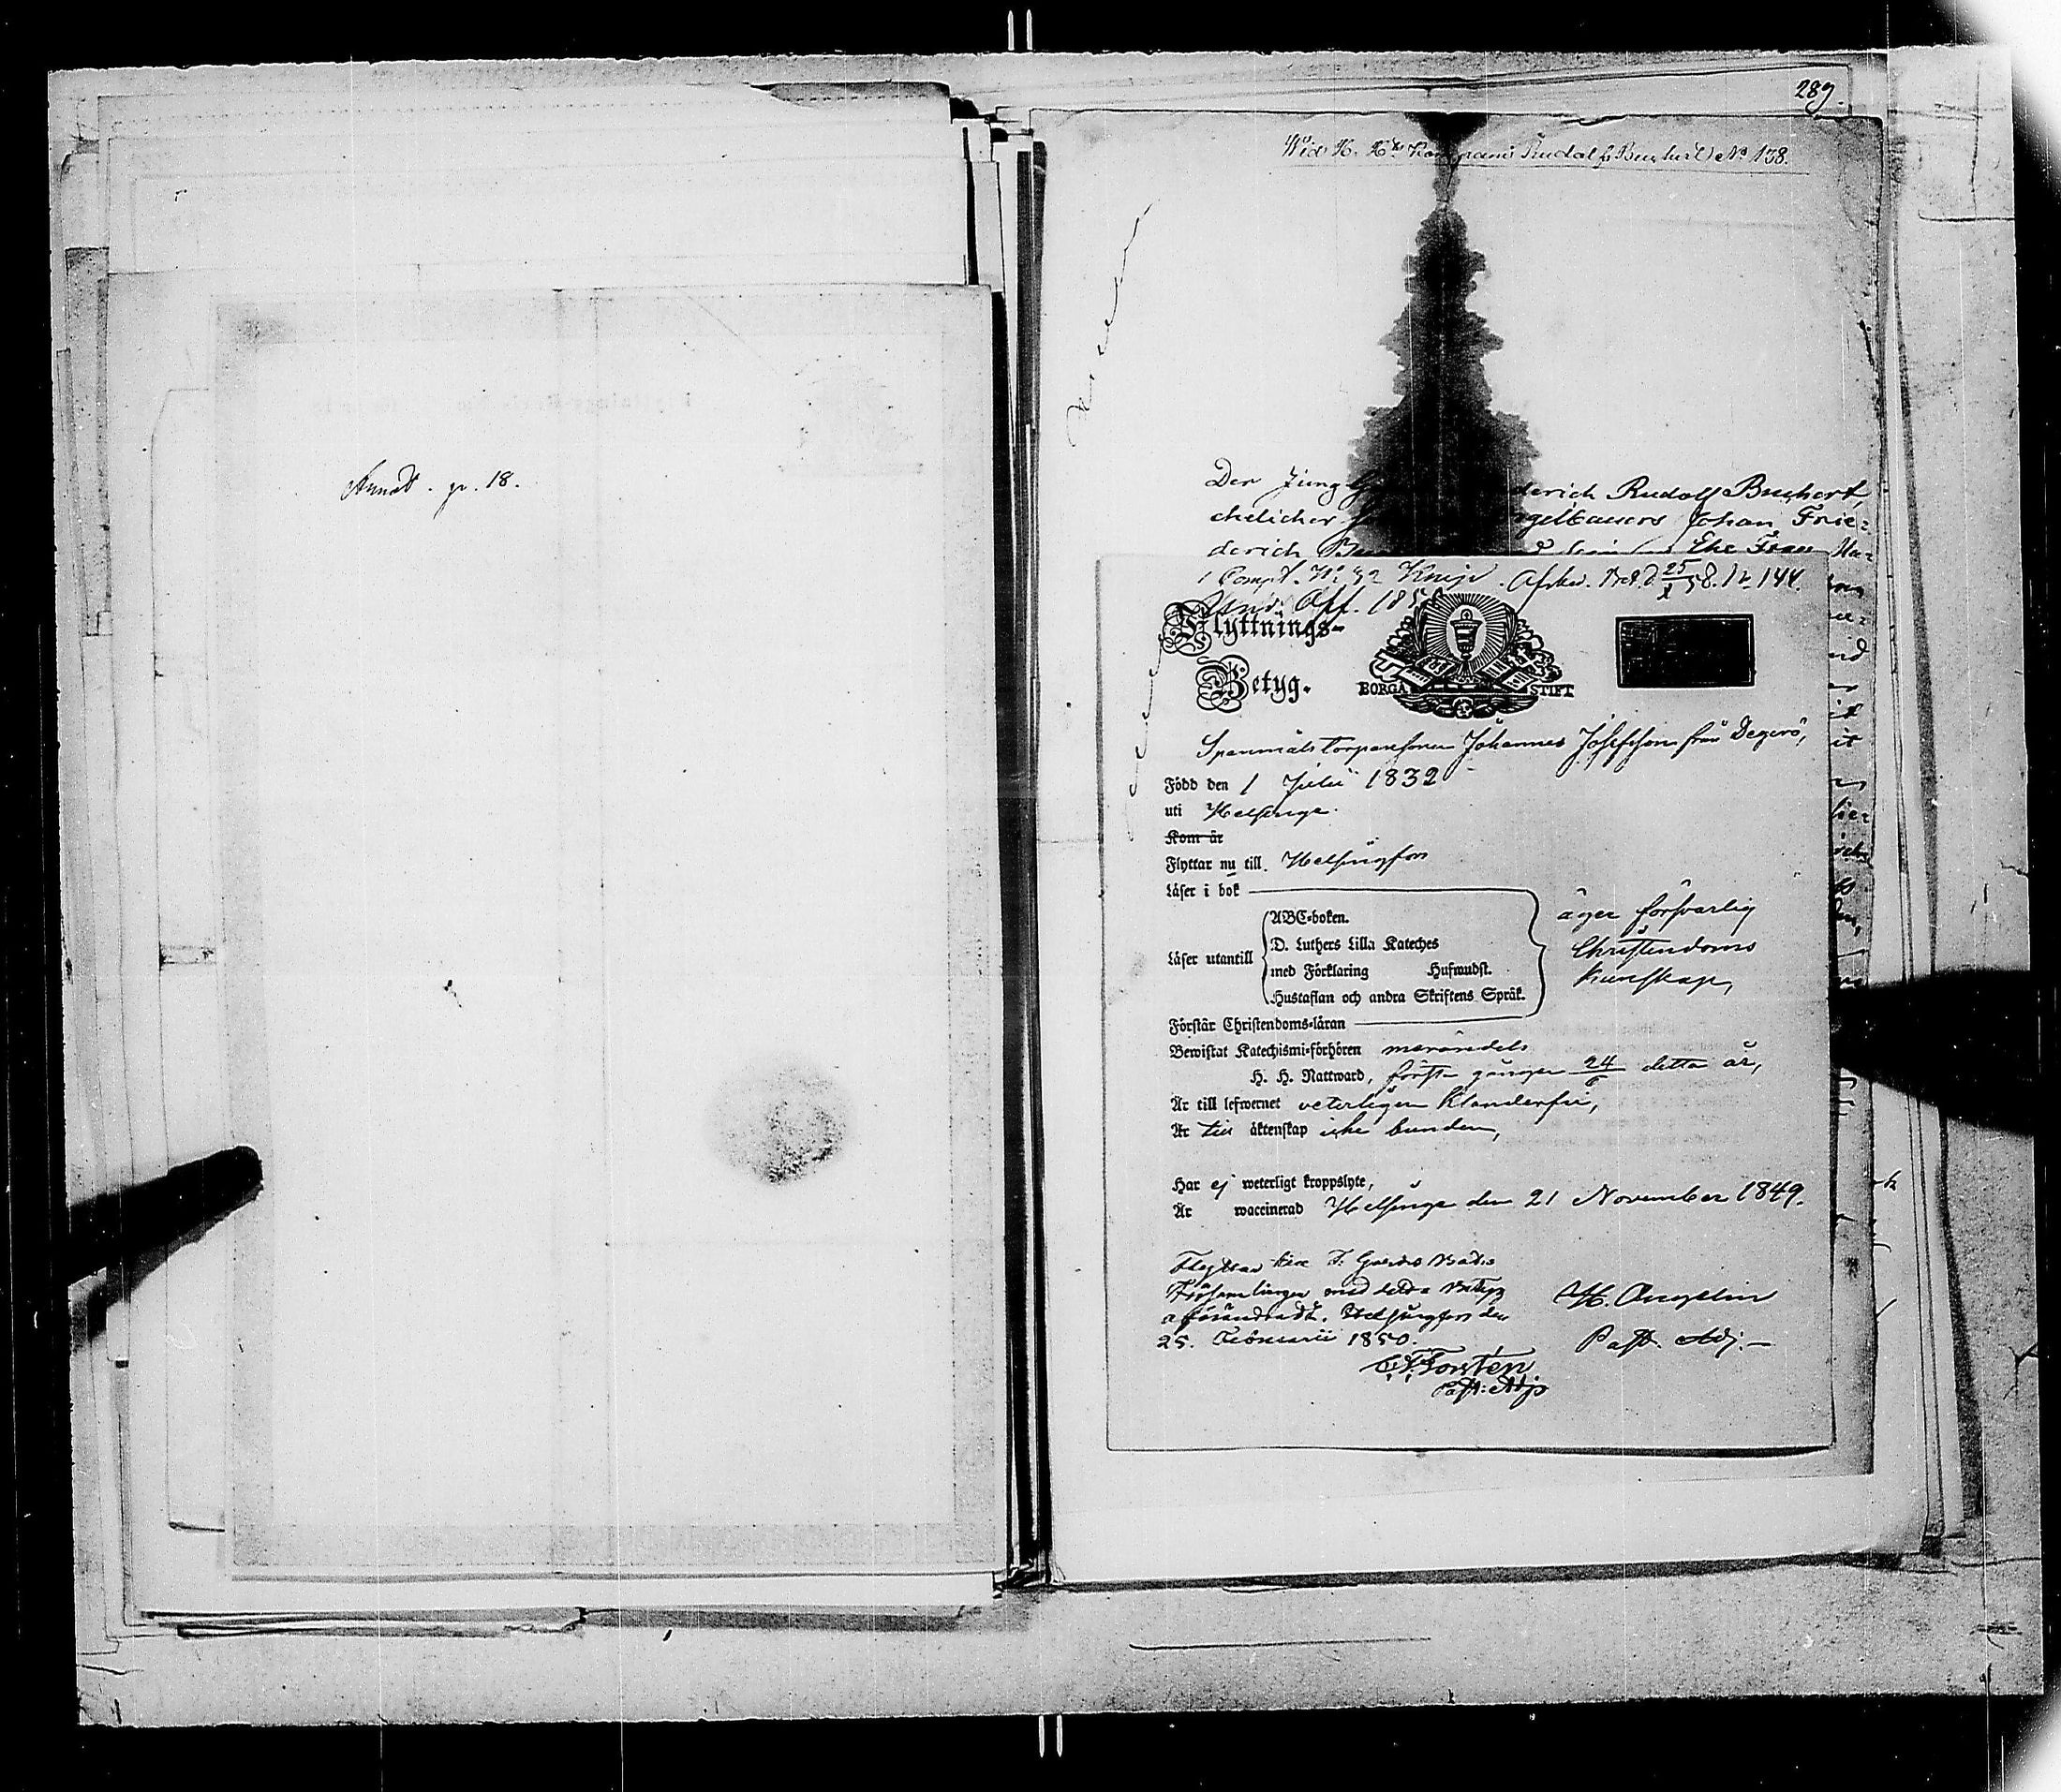 Anmält. p. 18.
289.
Rudolf Buchert № 138.
Der Jung derich Rudolf Buchert,
ehelicher Johan Frie=
derich Ehe Frau
1 Compt. № 92 Knip. Afsked. Bet. d. 25/1 58. № 144.
Und. Off. 185
Flyttnings=
Betyg.
BORGÅ STIFT
Spanmåls Torparesonen Johannes Josefsson från Degerö,
Född den 1 Julii 1832
uti Helsinge.
Kom år
Flyttar nu till Helsingfors
Läser i bok
ABC=boken.
D. Luthers Lilla Kateches
Läser utantill
med Förklaring Hufwudst.
Hustaflan och andra Skriftens Språk.
äger försvarlig
Christendoms
kunskap,
Förstår Christendoms=läran
Bewistat Katechismi=förhören merändels
H. H. Nattward, första gången 24/6 detta år,
Är till lefwernet veterligen klanderfri,
Är till äktenskap icke bunden,
Har ej weterligt kroppslyte,
Är waccinerad Helsinge den 21 November 1849.
Flyttar till F. Gardes Bat:s
Församlingen med detta Betyg
oförändradt. Helsingfors den
25. Februarii 1850.
Past. Adj.
Forstén
Past: Adj: